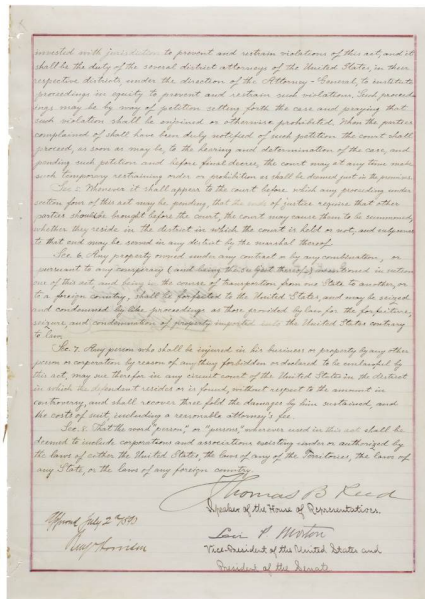 invested with jurisdiction to prevent and restrain violations of this act; and it
shall be the duty of the several district attorneys of the United States, in their
respective districts, under the direction of the Attorney-General, to institute
proceedings in equity to prevent and restrain such violations. Such proceed-
ings may be by way of petition setting forth the case and praying that
such violation shall be enjoined or otherwise prohibited. When the parties
complained of shall have been duly notified of such petition the court shall
proceed, as soon as may be, to the hearing and determination of the case; and
pending such petition and before final decree, the court may at any time make
such temporary restraining order or prohibition as shall be deemed just in the premises.
Sec. 5. Whenever it shall appear to the court before which any proceeding under
section four of this act may be pending, that the ends of justice require that other
parties should be brought before the court, the court may cause them to be summoned,
whether they reside in the district in which the court is held or not; and subpoenas
to that end may be served in any district by the marshal thereof.
Sec. 6. Any property owned under any contract or by any combination, or
pursuant to any conspiracy (and being the subject thereof) mentioned in section
one of this act, and being in the course of transportation from one State to another, or
to a foreign country, shall be forfeited to the United States, and may be seized
and condemned by like proceedings as those provided by law for the forfeiture,
seizure, and condemnation of property imported into the United States contrary
to law.
Sec. 7. Any person who shall be injured in his business or property by any other
person or corporation by reason of anything forbidden or declared to be unlawful by
this act, may sue therefor in any circuit court of the United States in the district
in which the defendant resides or is found, without respect to the amount in
controversy, and shall recover three fold the damages by him sustained, and
the costs of suit, including a reasonable attorney's fee.
Sec. 8. That the word "person," or "persons," wherever used in this act shall be
deemed to include corporations and associations existing under or authorized by
the laws of either the United States, the laws of any of the Territories, the laws of
any State, or the laws of any foreign country.
Thomas B Reed
Speaker of the House of Representatives.
Approved July 2d 1890
Levi P. Morton
Benj Harrison
Vice-President of the United States and
President of the Senate